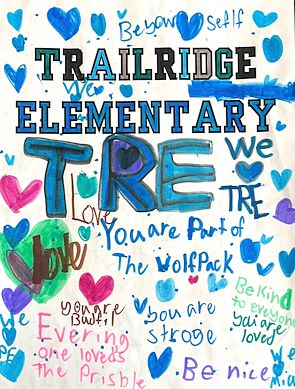 Be your self
TRAILRIDGE
We
ELEMENTARY
TRE
We
TRE
Love
You are Part of
The Wolf Pack
love
Be Kind
to everyone
you are
loved
you are
Bautifl
you are
stroge
We
Evering
one loveds
the Prisble
Be nice
We